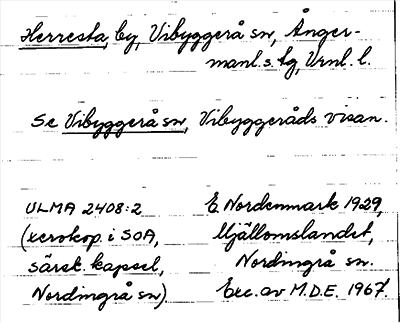 Herresta, by, Vibyggerå sn, Ånger-
manl. s. tg, Vrnl. l.
Se Vibyggerå sn, Vibyggeråds visan.
ULMA 2408:2
(xerokop. i SOA,
särsk. kapsel,
Nordingrå sn)
E Nordenmark 1929,
Mjällomslandet,
Nordingrå sn.
Exc. av M.D.E. 1967.